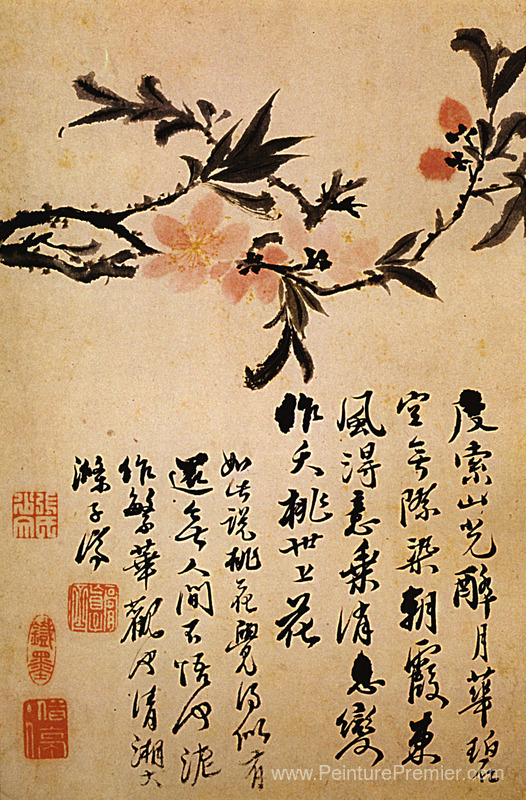 度索山光醉月華碧
空無際染朝霞東
風得意乘消息變
作夭桃世上花
如此說桃花覺得似有
還無人間不悟何泥
作繁華觀也清湘大
滌子
www.PeinturePremier.com